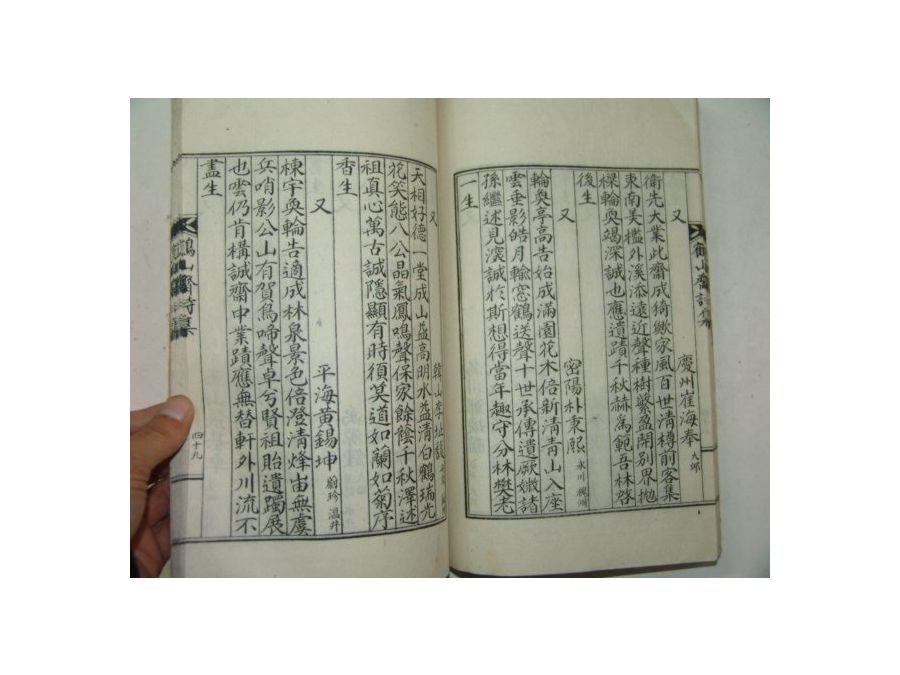 又
慶州崔海奉 大邱
衛先大業此齋成猗歟家風百世清樽前客集
東南美檻外溪添遠近聲種樹繁盈開別界抛
樑輪奐竭深誠也應遺蹟千秋赫爲範吾林啓
後生
又
密陽朴秉熙 永川
輪奐亭高告始成滿園花木倍新清青山入座
雲垂影皓月輸窓鶴送聲十世承傳遺厥媺諸
孫繼述見誠於斯想得當年趣守分林樊老
一生
鶴山齋詩集
又
韓山李
天相好德一堂成山益高明水益清白鶴瑞光
花笑態八公晶氣鳳鳴聲保家餘蔭千秋澤述
祖真心萬古誠隱顯有時須莫道如蘭如菊序
香生
又
平海黃錫坤 蔚珍 溫井
棟宇奐輪告適成林泉景色倍澄清烽宙無虞
兵哨影公山有賀鳥啼聲卓兮賢祖貽遺躅展
也雲仍肯構誠齋中業蹟應無替軒外川流不
盡生
鶴山齋詩集
四十九